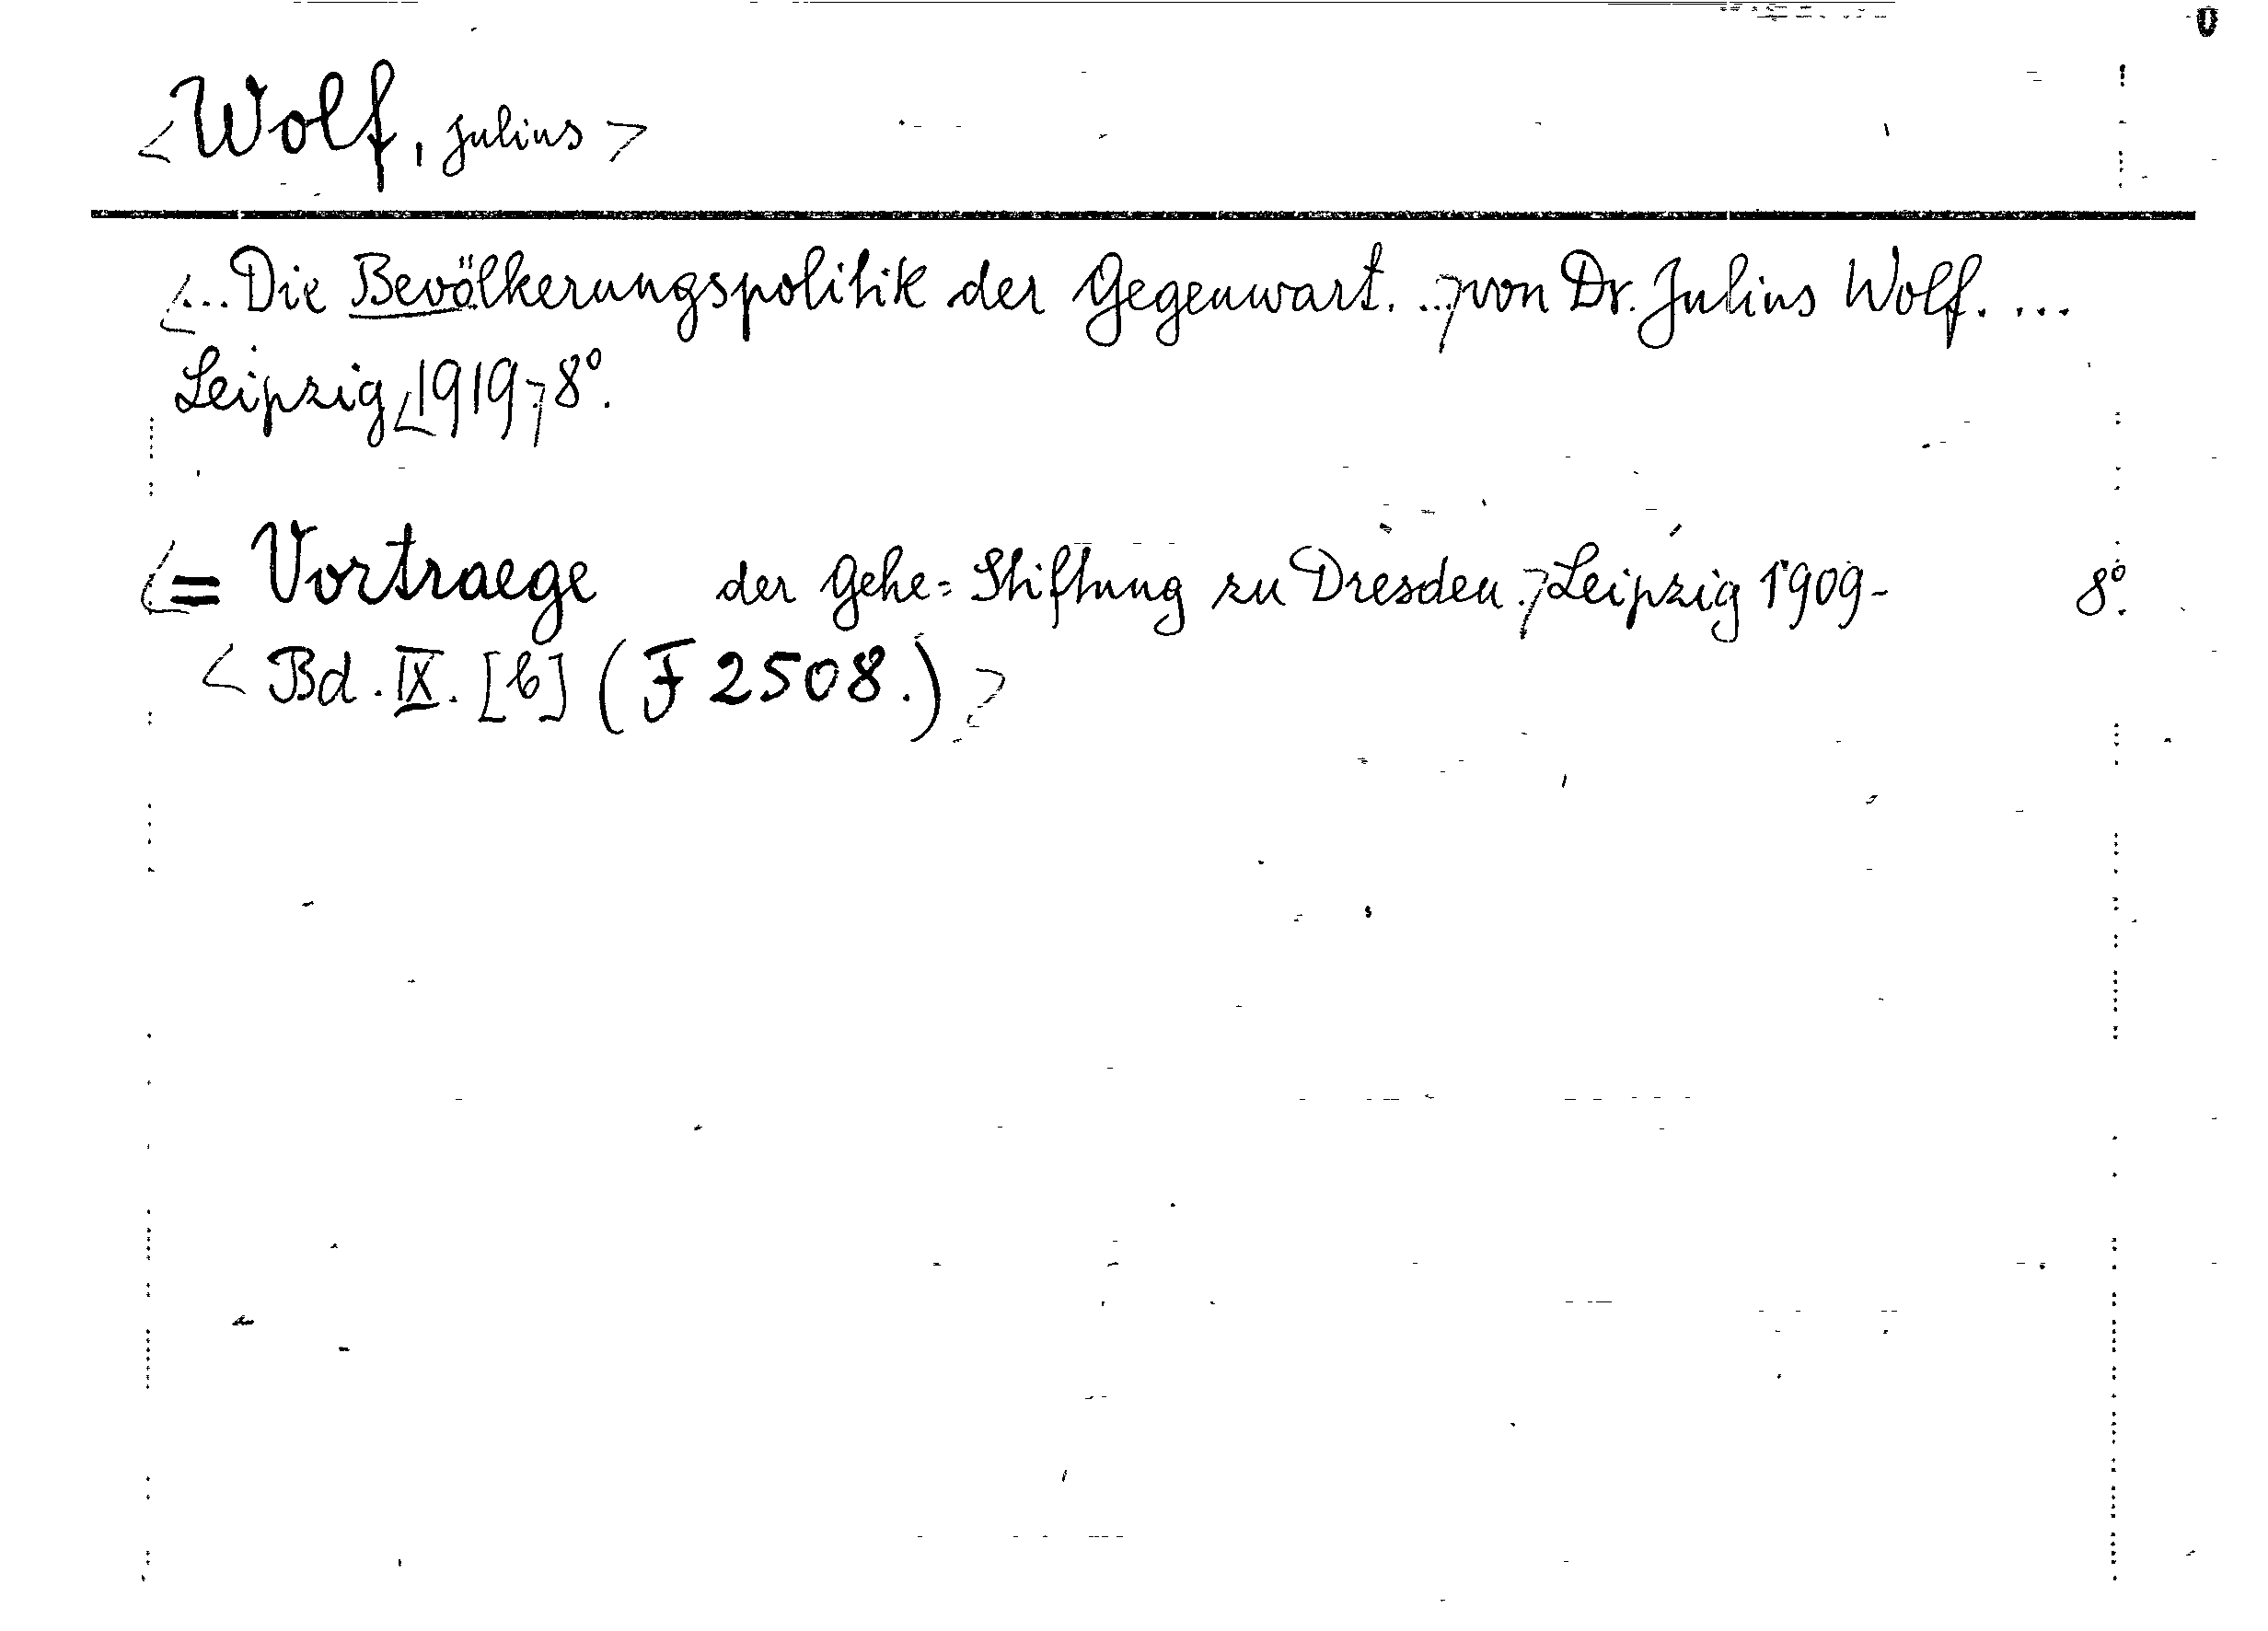 <Wolf, Julius>
<... Die Bevölkerungspolitik der Gegenwart. ..> von Dr. Julius Wolf. ...
Leipzig <1919> 8°.
<= Vortraege der Gehe=Stiftung zu Dresden.> Leipzig 1909- 8°.
<Bd. IX. [6] (F 2508.)>